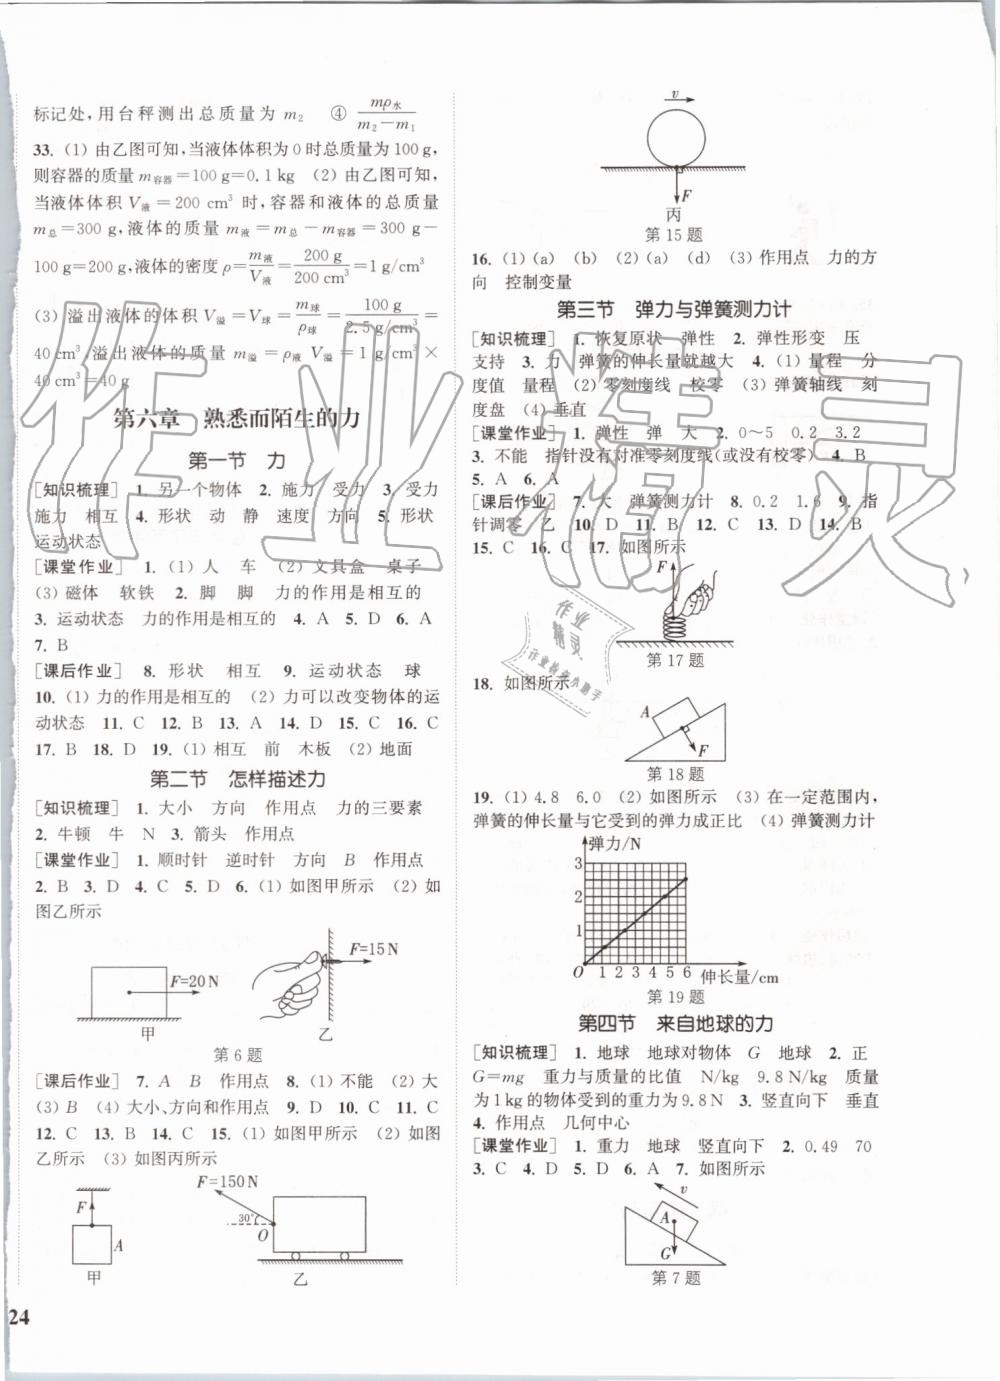 标记处,用台秤测出总质量为 m₂　④ mρ水/(m₂－m₁)
33. (1) 由乙图可知,当液体体积为 0 时总质量为 100 g,
则容器的质量 m容器＝100 g＝0.1 kg　(2) 由乙图可知,
当液体体积 V液＝200 cm³ 时,容器和液体的总质量
m总＝300 g,液体的质量 m液＝m总－m容器＝300 g－
100 g＝200 g,液体的密度 ρ＝m液/V液＝200 g/200 cm³＝1 g/cm³
(3) 溢出液体的体积 V溢＝V球＝m球/ρ球＝100 g/2.5 g/cm³＝
40 cm³,溢出液体的质量 m溢＝ρ液 V溢＝1 g/cm³×
40 cm³＝40 g
第六章　熟悉而陌生的力
第一节　力
[知识梳理]　1. 另一个物体　2. 施力　受力　3. 受力
施力　相互　4. 形状　动　静　速度　方向　5. 形状
运动状态
[课堂作业]　1. (1) 人　车　(2) 文具盒　桌子
(3) 磁体　软铁　2. 脚　脚　力的作用是相互的
3. 运动状态　力的作用是相互的　4. A　5. D　6. A
7. B
[课后作业]　8. 形状　相互　9. 运动状态　球
10. (1) 力的作用是相互的　(2) 力可以改变物体的运
动状态　11. C　12. B　13. A　14. D　15. C　16. C
17. B　18. D　19. (1) 相互　前　木板　(2) 地面
第二节　怎样描述力
[知识梳理]　1. 大小　方向　作用点　力的三要素
2. 牛顿　牛　N　3. 箭头　作用点
[课堂作业]　1. 顺时针　逆时针　方向　B　作用点
2. B　3. D　4. C　5. D　6. (1) 如图甲所示　(2) 如
图乙所示
F=20 N
甲
F=15 N
乙
第 6 题
[课后作业]　7. A　B　作用点　8. (1) 不能　(2) 大
(3) B　(4) 大小、方向和作用点　9. D　10. C　11. C
12. C　13. B　14. C　15. (1) 如图甲所示　(2) 如图
乙所示　(3) 如图丙所示
F
A
甲
F=150 N
30°
O
乙
24
v
F
丙
第 15 题
16. (1) (a)　(b)　(2) (a)　(d)　(3) 作用点　力的方
向　控制变量
第三节　弹力与弹簧测力计
[知识梳理]　1. 恢复原状　弹性　2. 弹性形变　压
支持　3. 力　弹簧的伸长量就越大　4. (1) 量程　分
度值　量程　(2) 零刻度线　校零　(3) 弹簧轴线　刻
度盘　(4) 垂直
[课堂作业]　1. 弹性　弹　大　2. 0～5　0.2　3.2
3. 不能　指针没有对准零刻度线(或没有校零)　4. B
5. A　6. A
[课后作业]　7. 大　弹簧测力计　8. 0.2　1.6　9. 指
针调零　乙　10. D　11. B　12. C　13. D　14. B
15. C　16. C　17. 如图所示
F
第 17 题
18. 如图所示
A
F
第 18 题
19. (1) 4.8　6.0　(2) 如图所示　(3) 在一定范围内,
弹簧的伸长量与它受到的弹力成正比　(4) 弹簧测力计
弹力/N
3
2
1
O　1　2　3　4　5　6　伸长量/cm
第 19 题
第四节　来自地球的力
[知识梳理]　1. 地球　地球对物体　G　地球　2. 正
G=mg　重力与质量的比值　N/kg　9.8 N/kg　质量
为 1 kg 的物体受到的重力为 9.8 N　3. 竖直向下　垂直
4. 作用点　几何中心
[课堂作业]　1. 重力　地球　竖直向下　2. 0.49　70
3. C　4. D　5. D　6. A　7. 如图所示
v
A
G
第 7 题
作业精灵
作业
精灵
作业检查小助手